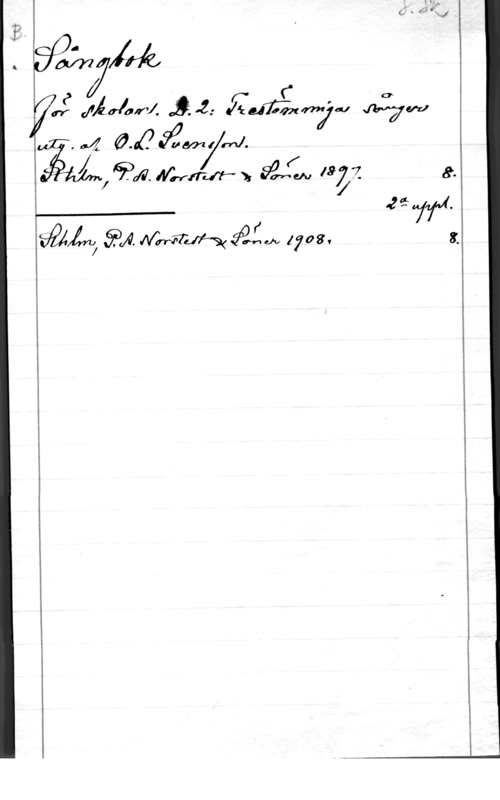 B.
Sångbok
för skolan. D. 2: Trestämmiga sånger
utg. af O. L. Svensson.
Sthlm, P. A. Norstedt & Söner 1897. 8.
2a uppl.
Sthlm, P. A. Norstedt & Söner 1908. 8.